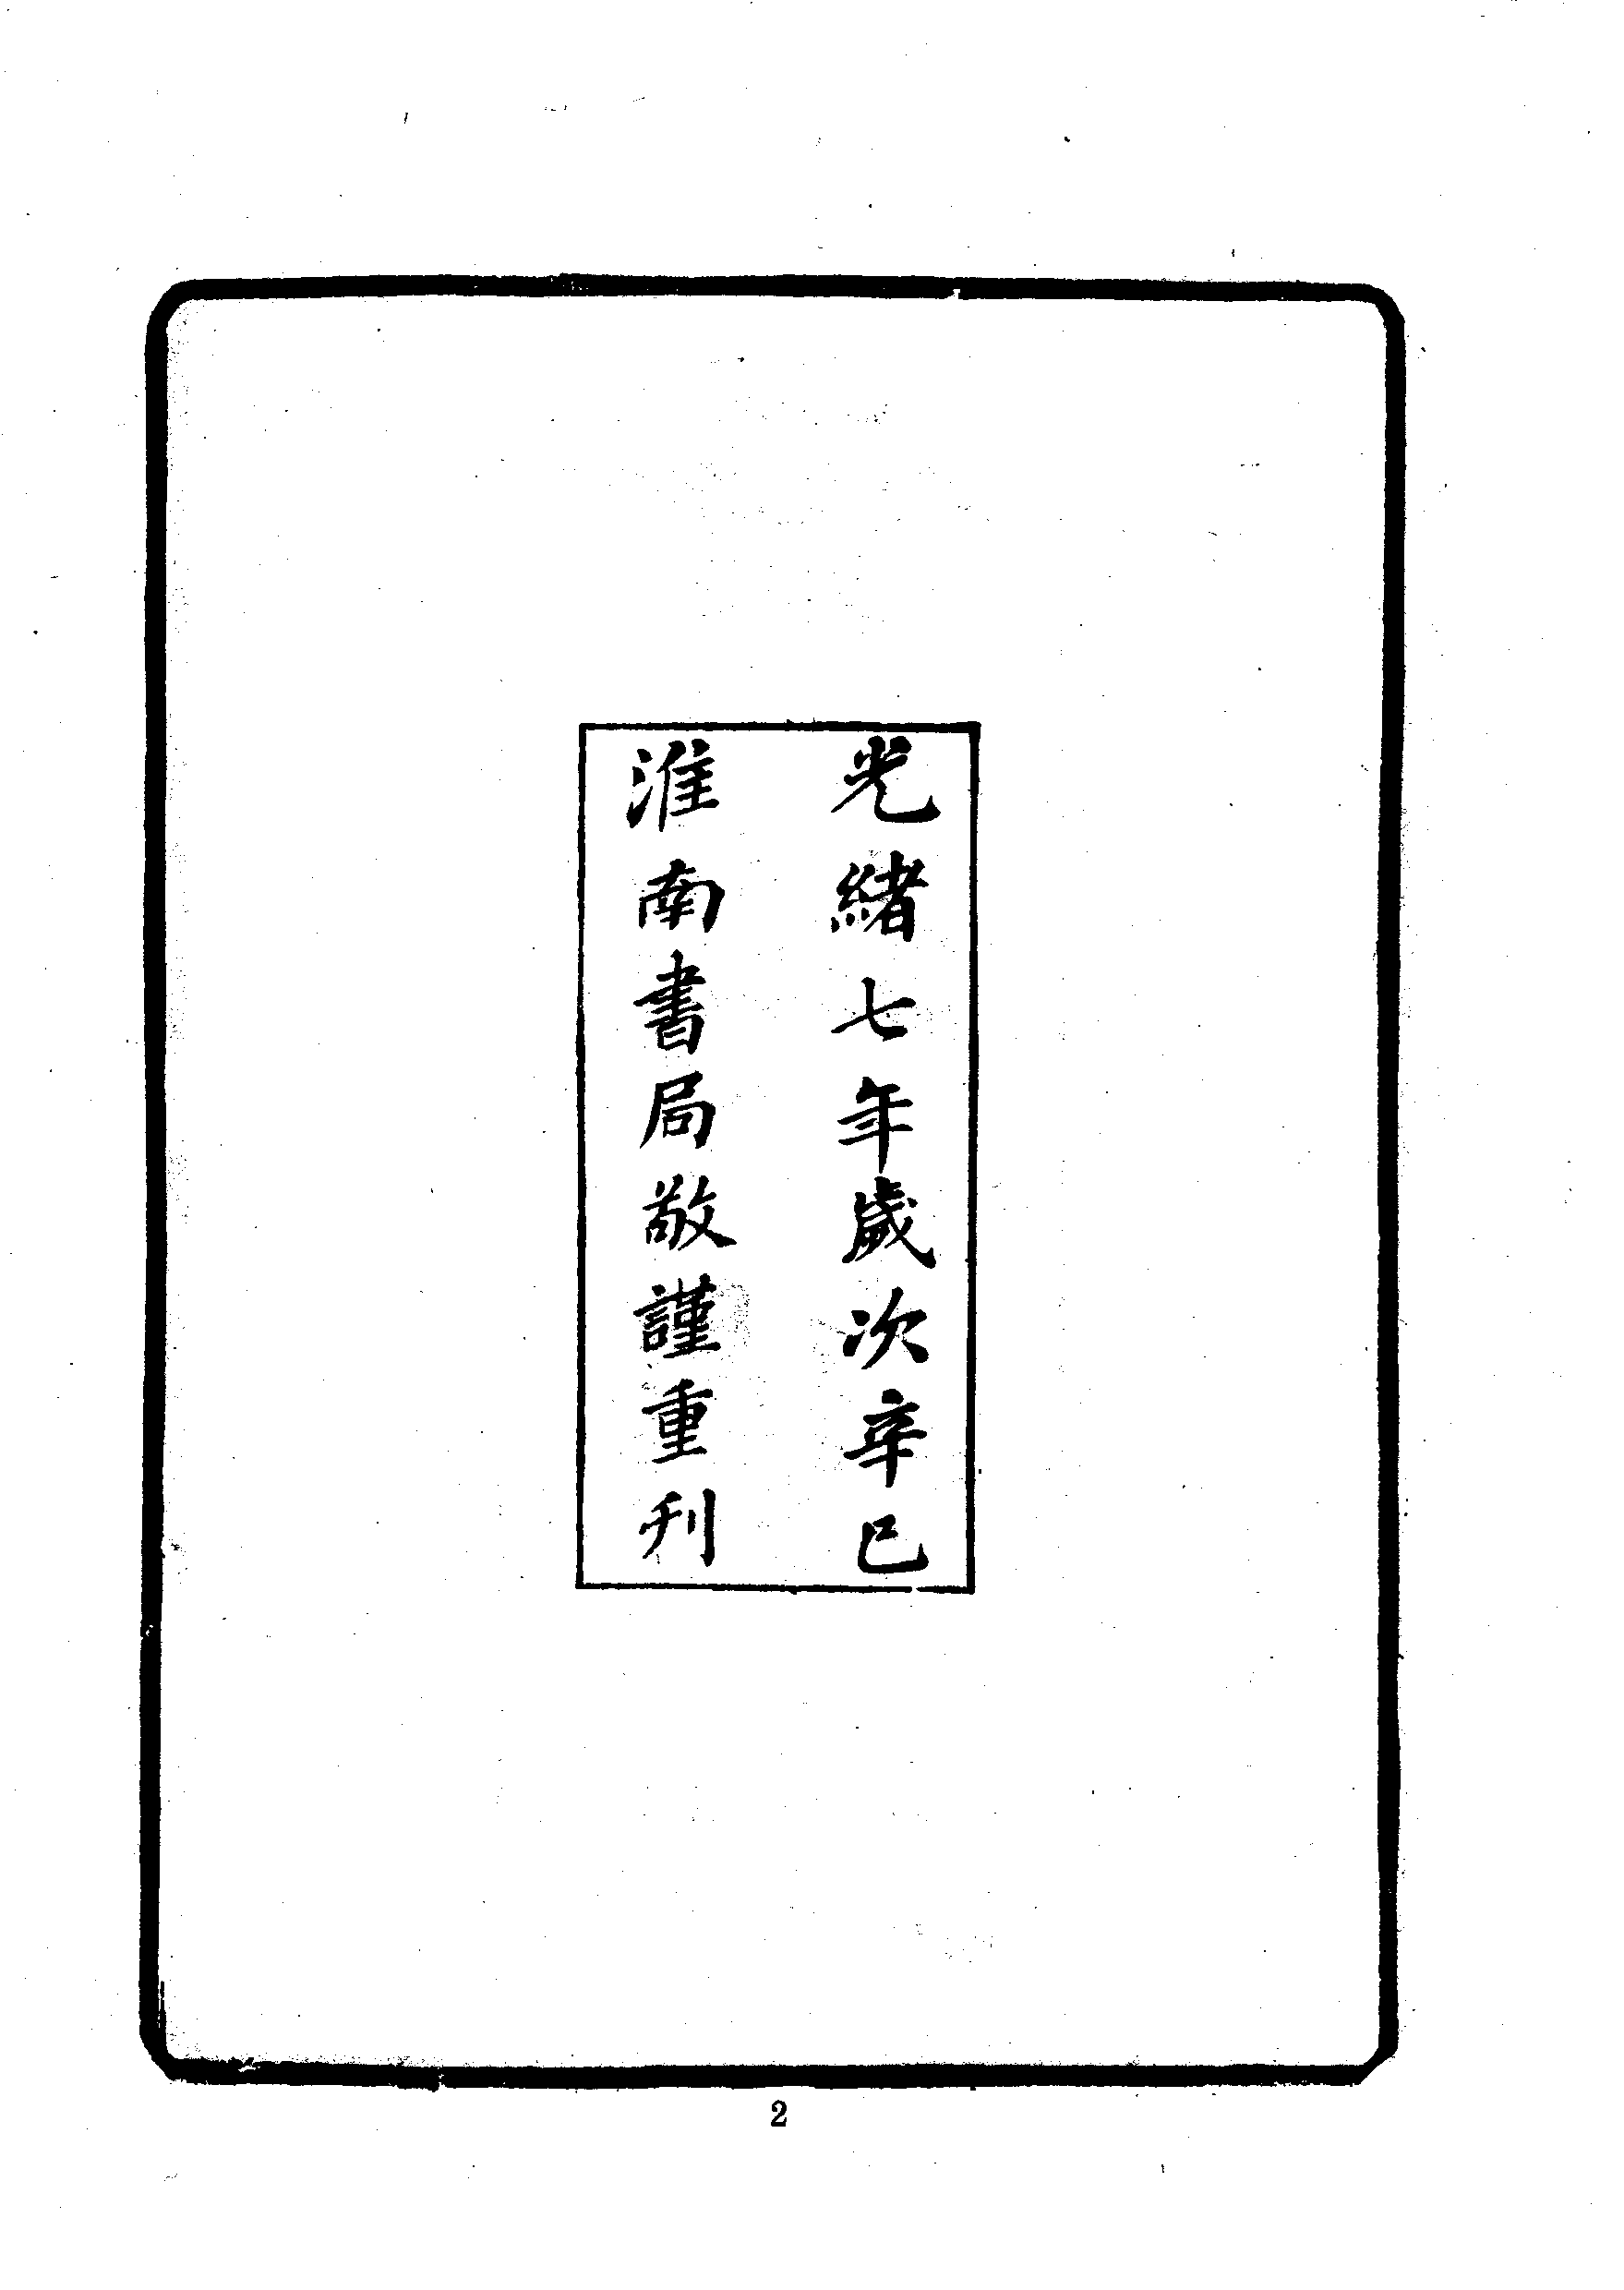 光緒七年歲次辛巳
淮南書局敬謹重刊
2